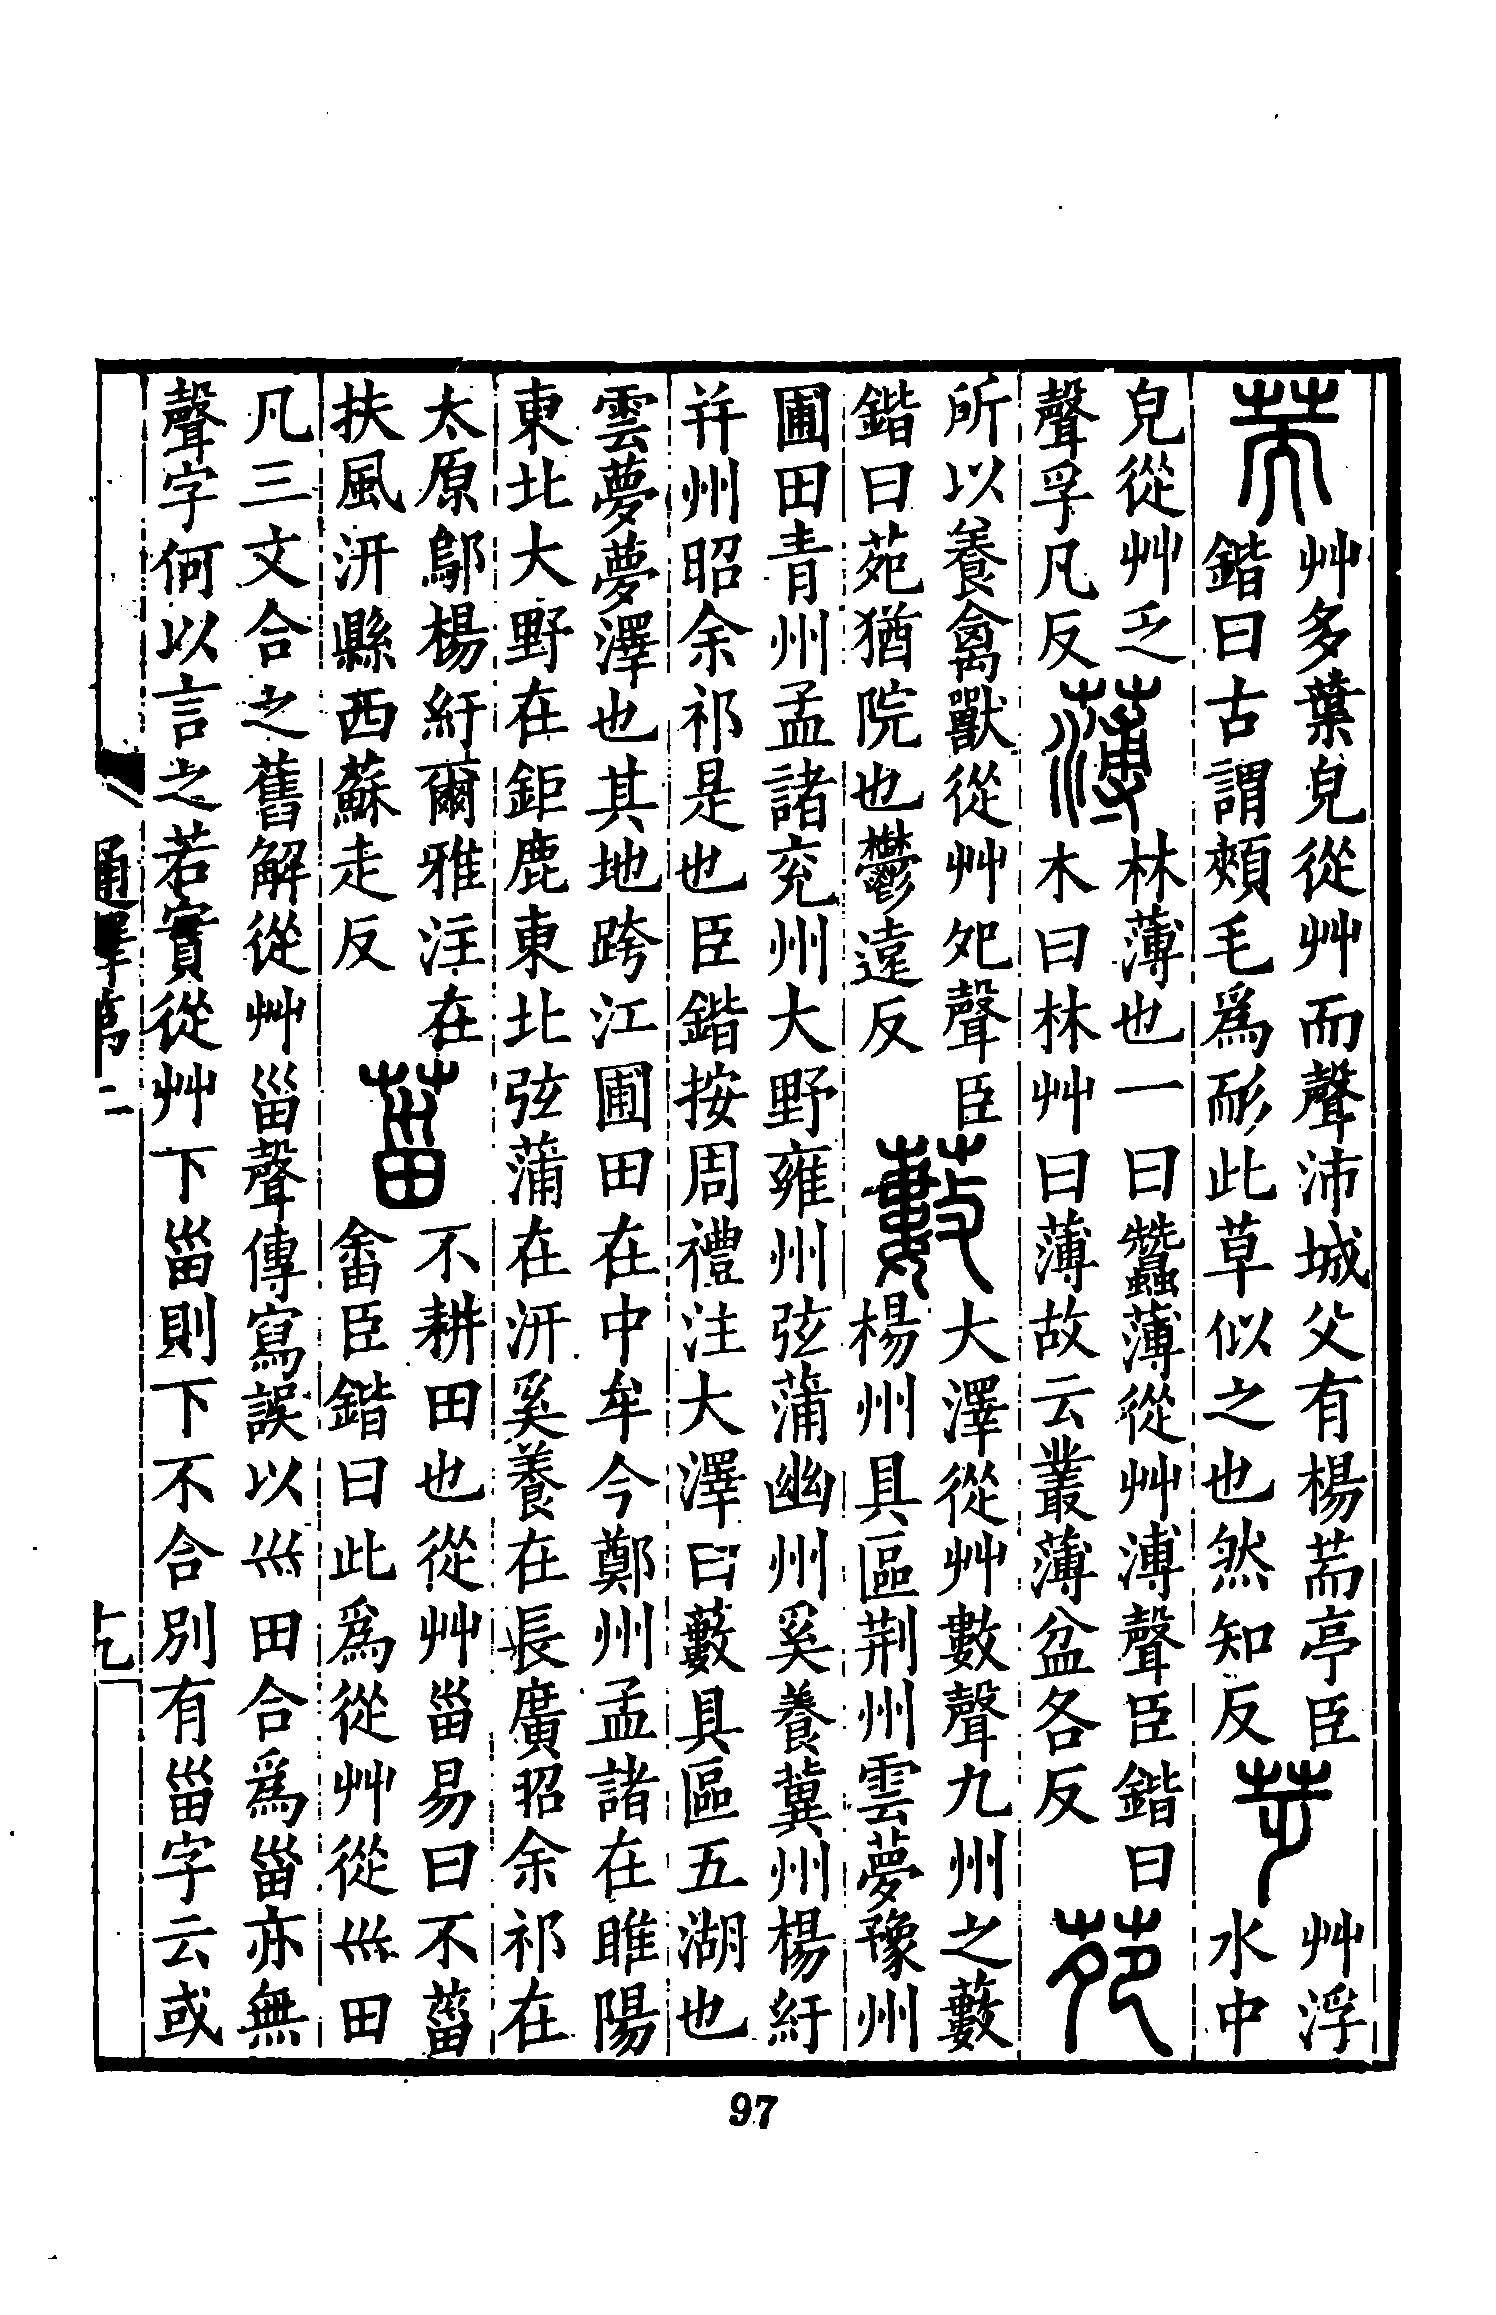 荋
艸多葉皃從艸而聲沛城父有楊荋亭臣
鍇曰古謂頰毛爲耏此草似之也然知反
芝
艸浮
水中
皃從艸乏
聲孚凡反
薄
林薄也一曰蠶薄從艸溥聲臣鍇曰
木曰林艸曰薄故云叢薄盆各反
苑
所以養禽獸從艸夗聲臣
鍇曰苑猶院也鬱遠反
藪
大澤從艸數聲九州之藪
楊州具區荆州雲夢豫州
圃田青州孟諸兖州大野雍州弦蒲幽州奚養冀州楊紆
幷州昭余祁是也臣鍇按周禮注大澤曰藪具區五湖也
雲夢夢澤也其地跨江圃田在中牟今鄭州孟諸在睢陽
東北大野在鉅鹿東北弦蒲在汧奚養在長廣昭余祁在
太原鄔楊紆爾雅注在
扶風汧縣西蘇走反
菑
不耕田也從艸甾易曰不菑
畬臣鍇曰此爲從艸從巛田
凡三文合之舊解從艸甾聲傳寫誤以巛田合爲甾亦無
聲字何以言之若實從艸下甾則下不合別有甾字云或
通釋第二
十九
97